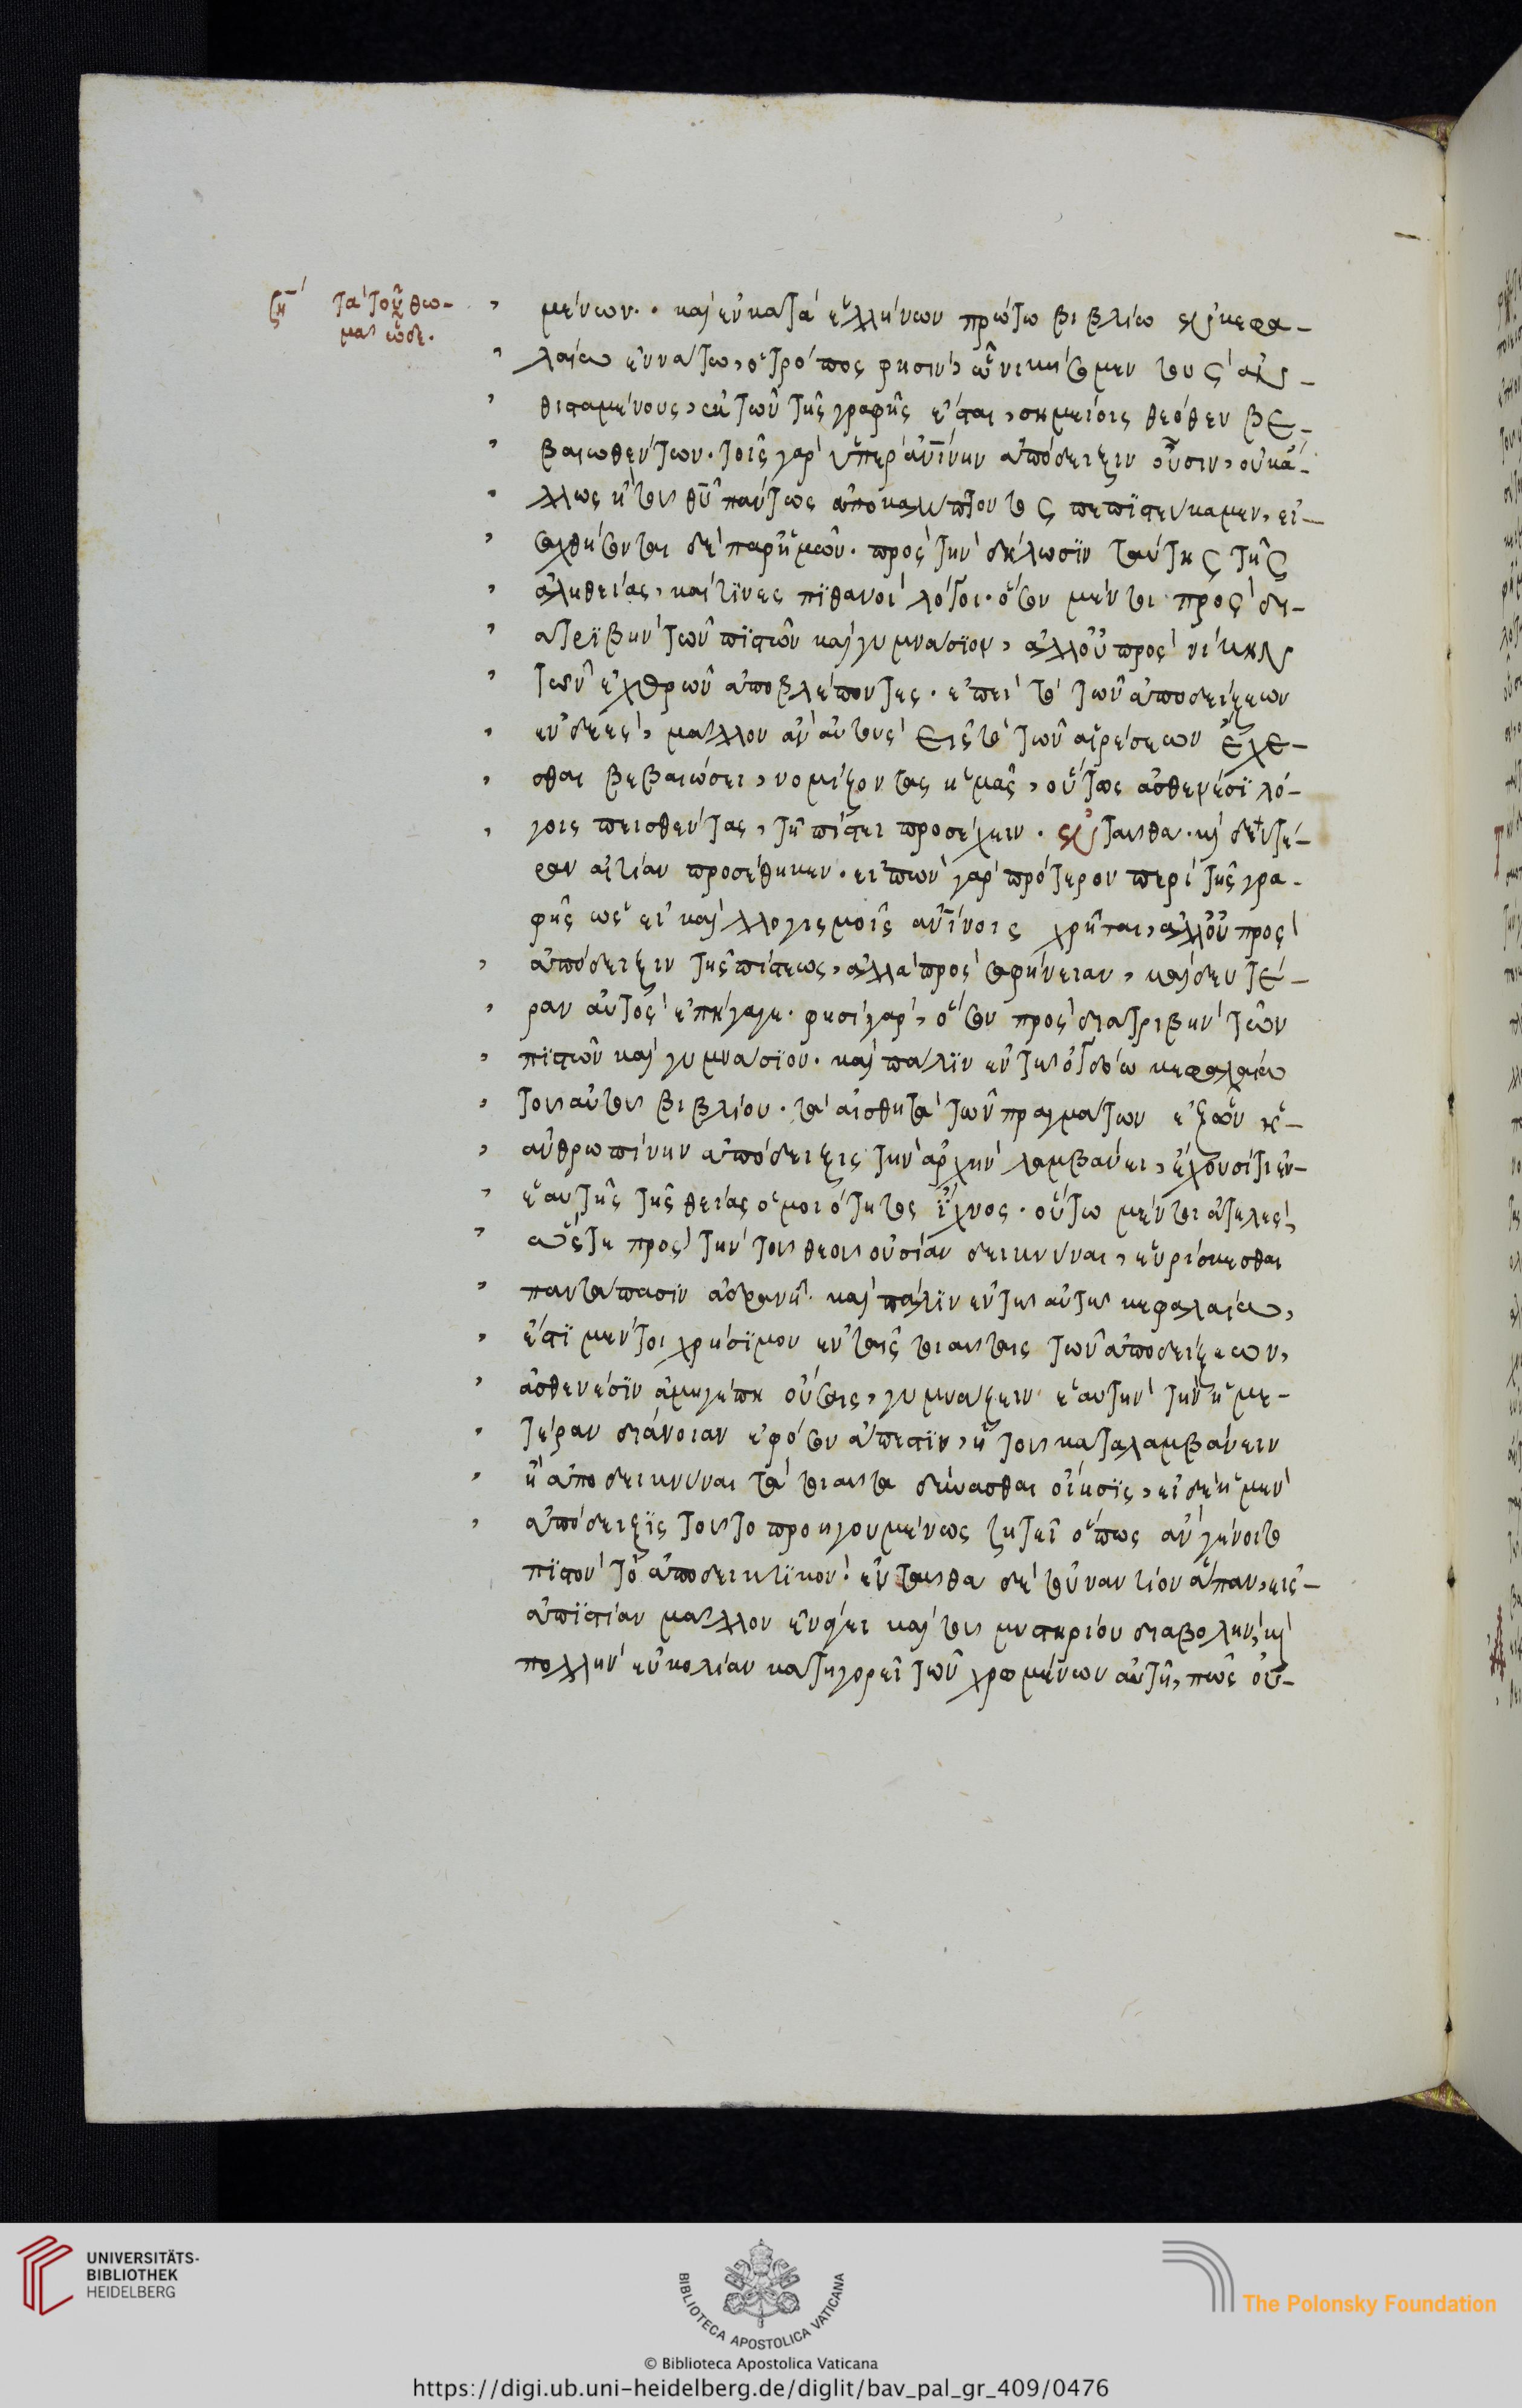 ζη΄ τὰ τοῦ θω-
μᾶ ὧδε.
μένων. καὶ ἐν κατὰ ἑλλήνων πρώτω βιβλίω ἐν κεφα-
λαίω ἐννάτω, ὁ τρόπος φησὶν, ὧ νικήσομεν τοὺς ἀν-
θισταμένους, ἐκ τῶν τῆς γραφῆς ἔσται, σημείοις θεόθεν βε-
βαιωθέντων. τοῖς γὰρ ὑπὲρ ἀνίνην ἀπόδειξιν οὖσιν, οὐκ ἄ-
λλως ἢ τοῦ θῦ πάντως ἀποκαλύπτοντος πεπιστεύκαμεν, εἰ-
σαχθήσονται δὲ παρ' ἡμῶν. πρὸς τὴν δήλωσιν ταύτης τῆς
ἀληθείας, καί τινες πιθανοὶ λόγοι. ὅσον μέντοι πρὸς δι-
ατριβὴν τῶν πιστῶν καὶ γυμνάσιον, ἀλλ' οὐ πρὸς νίκην
τῶν ἐχθρῶν ἀποβλέποντες. ἐπεὶ τὸ τῶν ἀποδείξεων
ἐνδεὲς, μᾶλλον ἂν αὐτοὺς εἰς τὸ τῶν αἱρέσεων ἔχε-
σθαι βεβαιώσει, νομίζοντας ἡμᾶς, οὕτως ἀσθενέσι λό-
γοις πεισθέντας, τῆ πίστει προσέχειν. ἐνταῦθα. καὶ δευτέ-
ραν αἰτίαν προσέθηκεν. εἰπὼν γὰρ πρότερον περὶ τῆς γρα-
φῆς ὡς εἰ καὶ λλογισμοῖς ἀνίνοις χρῆται, ἀλλ' οὐ πρὸς
ἀπόδειξιν τῆς πίστεως, ἀλλὰ πρὸς σαφήνειαν, καὶ δευτέ-
ραν αὐτὸς ἐπήγαγε. φησὶ γάρ, ὅσον πρὸς διατριβὴν τῶν
πιστῶν καὶ γυμνάσιον. καὶ πάλιν ἐν τῶ ὀγδόω κεφαλαίω
τοῦ αὐτοῦ βιβλίου. τὰ αἰσθητὰ τῶν πραγμάτων ἐξ ὧν ἡ
ἀνθρωπίνην ἀπόδειξις τὴν ἀρχὴν λαμβάνει, ἔχουσί τι ἐν
ἑαυτῆς τῆς θείας ὁμοιότητος ἴχνος. οὕτω μέντοι ἀτελὲς,
ὥστε πρὸς τὴν τοῦ θεοῦ οὐσίαν δεικνύναι, εὑρίσκεσθαι
παντάπασιν ἀσθενῆ. καὶ πάλιν ἐν τῶ αὐτῶ κεφαλαίω,
ἔστι μέντοι χρήσιμον ἐν ταῖς τοιαύταις τῶν ἀποδείξεων,
ἀσθενέσιν ἀμηγέπη οὔσαις, γυμνάζειν ἑαυτὴν τὴν ἡμε-
τέραν διάνοιαν ἐφ' ὅσον ἄπεστιν, ἡ τοῦ καταλαμβάνειν
ἢ ἀποδεικνύναι τὰ τοιαῦτα δύνασθαι οἴησις, εἰ δὲ ἡ μὲν
ἀπόδειξις τοῦτο προηγουμένως ζητεῖ ὅπως ἂν γένοιτο
πιστὸν τὸ ἀποδεικτικόν. ἐνταῦθα δὲ τοὐναντίον ἅπαν, εἰς
ἀπιστίαν μᾶλλον ἐνάγει καὶ τοῦ μυστηρίου διαβολὴν, καὶ
πολλὴν εὐκολίαν κατηγορεῖ τῶν χρωμένων αὐτῆ, πῶς οὐ-
UNIVERSITÄTS-
BIBLIOTHEK
HEIDELBERG
BIBLIOTECA APOSTOLICA VATICANA
The Polonsky Foundation
© Biblioteca Apostolica Vaticana
https://digi.ub.uni-heidelberg.de/diglit/bav_pal_gr_409/0476